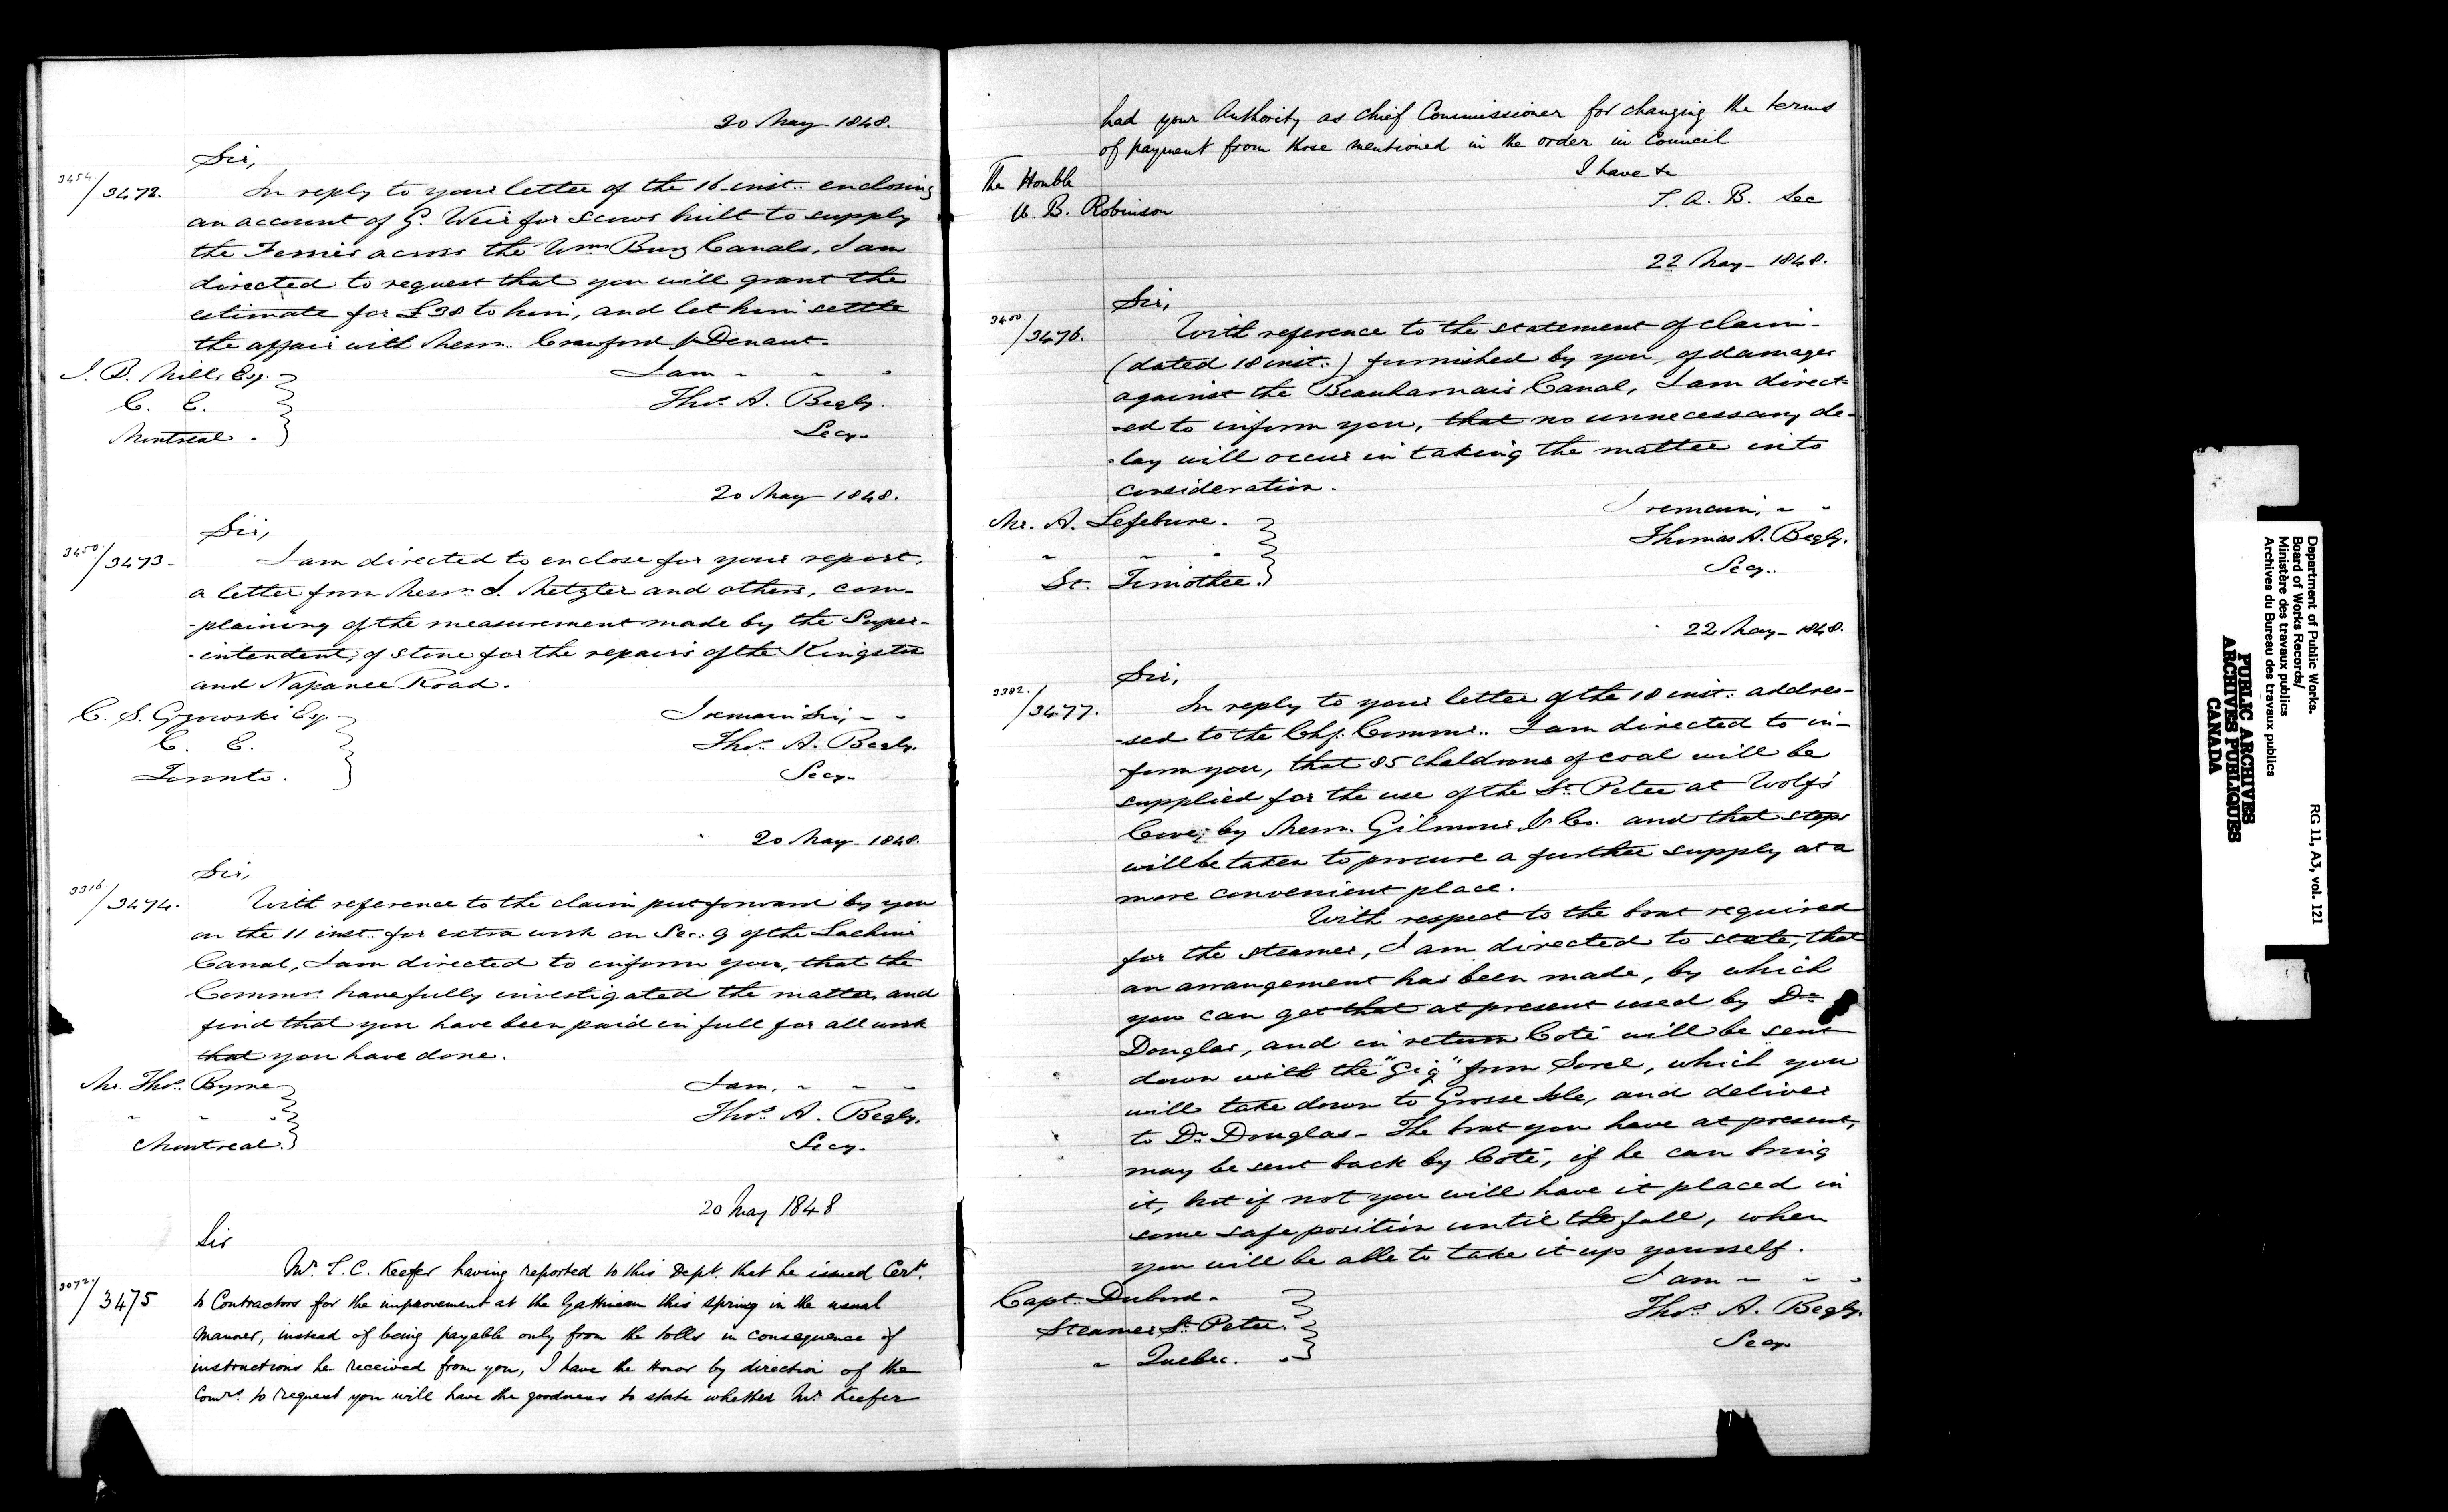 20 May 1848.
Sir,
3454./3472.
In reply to your letter of the 16 inst. enclosing
an account of G. Weir for scows built to supply
the Ferries across the Wms Burg Canals, I am
directed to request that you will grant the
estimate for £30 to him, and let him settle
the affair with Messrs. Crawford &
I am " " "
Thos. A. Begly.
Secy.
J. B. Mills Esq.
C. E.
Montreal.
20 May 1848.
Sir,
3450./3473.
I am directed to enclose for your report,
a letter from Messrs. J. Metzler and others, com-
-plaining of the measurement made by the Super-
-intendent, of stone for the repairs of the Kingston
and Napanee Road.
I remain Sir, " "
Thos. A. Begly.
Secy.
C. S. Gzowski Esq.
C. E.
Toronto.
20 May 1848.
Sir,
3316./3474.
With reference to the claim put forward by you
on the 11 inst. for extra work on Sec. 9 of the Lachine
Canal, I am directed to inform you, that the
Commrs. have fully investigated the matter, and
find that you have been paid in full for all work
that you have done.
I am, " " "
Thos. A. Begly.
Secy.
Mr. Thos. Byrne
" " "
Montreal.
20 May 1848
Sir
3072./3475
Mr. T. C. Keefer having reported to this Dept. that he issued Certs.
to Contractors for the improvement at the Gatineau this spring in the usual
manner, instead of being payable only from the tolls in consequence of
instructions he received from you, I have the honor by direction of the
Comrs. to request you will have the goodness to state whether Mr. Keefer
had your Authority as Chief Commissioner for changing the terms
of payment from those mentioned in the order in Council
I have &c
T. A. B. Sec
The Honble
W. B. Robinson
22 May 1848.
Sir,
3400./3476.
With reference to the statement of claim
(dated 18 inst.) furnished by you, of damages
against the Beauharnais Canal, I am direct-
-ed to inform you, that no unnecessary de-
-lay will occur in taking the matter into
consideration.
I remain, " "
Thomas A. Begly.
Secy.
Mr. A. Lefebvre.
" " "
St. Timothee.
22 May 1848.
Sir,
3382./3477.
In reply to your letter of the 18 inst. addres-
-sed to the Chf. Commr. I am directed to in-
form you, that 85 chaldrons of coal will be
supplied for the use of the St. Peter at Wolfs
Cove, by Messrs. Gilmour & Co. and that steps
will be taken to procure a further supply at a
more convenient place.
With respect to the boat required
for the steamer, I am directed to state, that
an arrangement has been made, by which
you can get that at present used by Dr.
Douglas, and in return Coté will be sent
down with the "Gig" from Sorel, which you
will take down to Grosse Isle, and deliver
to Dr. Douglas - The boat you have at present,
may be sent back by Coté, if he can bring
it, but if not you will have it placed in
some safe position until the fall, when
you will be able to take it up yourself.
I am " " "
Thos. A. Begly.
Secy.
Capt. Dubord.
Steamer St. Peter.
" Quebec.
Department of Public Works.
Board of Works Records/
Ministère des travaux publics
Archives du Bureau des travaux publics
RG 11, A3, vol. 121
PUBLIC ARCHIVES
ARCHIVES PUBLIQUES
CANADA